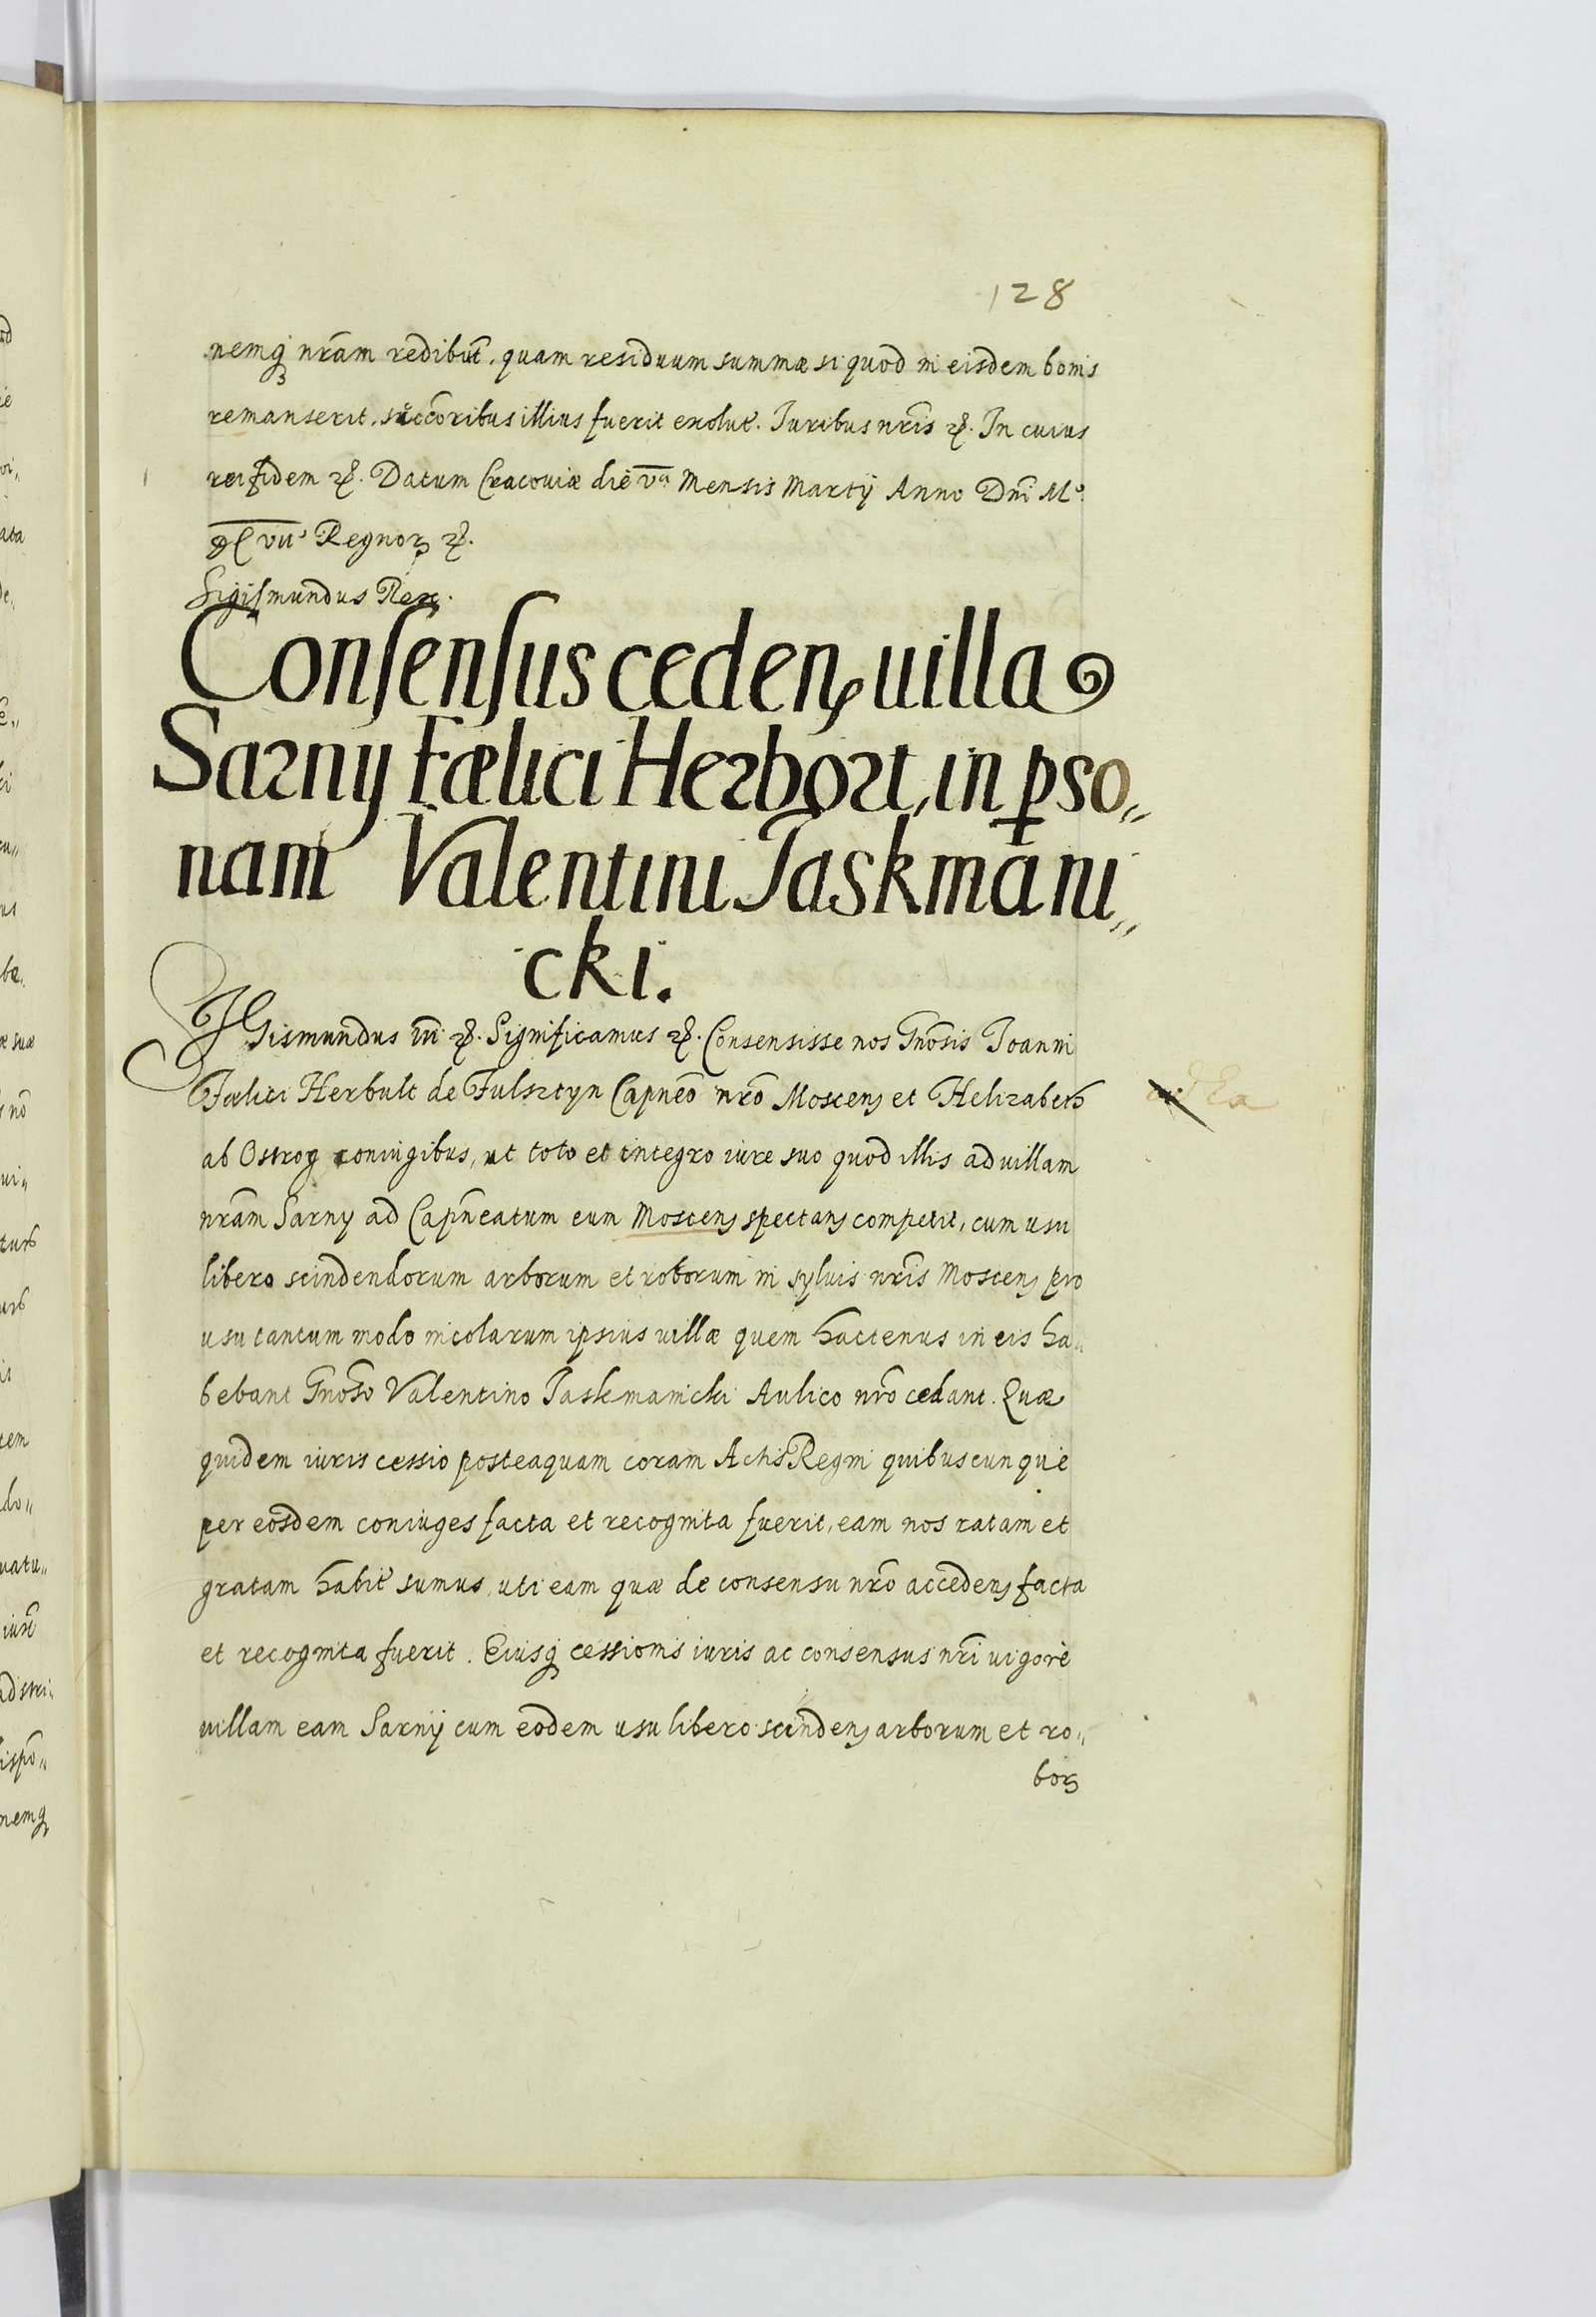 128
nemq̃ nrãm redibut̃. quam residuum summæ si quod in eisdem bonis
remanserit, succoribus illius fuerit exolut̃. Iuribus nrĩs ꝛ. In cuius
rei fidem ꝛ. Datum Cracoviæ die va Mensis Martij Anno Dni Mo
DC viio Regnorꝫ ꝛ.
Sigismundus Rex.
Consensus cedenꝭ uilla
Sarny Fælici Herbort, in ꝑso„
nam Valentini Jaskmani„
cki.
SIGismundus iii ꝛ. Significamus ꝛ. Consensisse nos Gnõsis Joanni
Fælici Herbult de Fulsztyn Capnẽo nrõ Moscenꝭ et Helizabeth
ab Ostrog coniugibus, ut toto et integro iure suo quod illis ad villam
nrãm Sarny ad Capñeatum eum Moscenꝭ spectanꝭ competit, cum usu
libero scindendorum arborum et roborum in syluis nrĩs Moscenꝭ pro
usu tantum modo incolarum ipsius villæ quem hactenus in eis ha„
bebant Gnõso Valentino Jaskmanicki Aulico nrõ cedant. Quæ
quidem iuris cessio posteaquam coram Actis Regni quibuscunque
per eosdem coniuges facta et recognita fuerit, eam nos ratam et
gratam habit̃ sumus, uti eam quæ de consensu nrõ accedenꝭ facta
et recognita fuerit. Eiusq̃ cessionis iuris ac consensus nrĩ uigore
villam eam Sarnij cum eodem usu libero scindenꝭ arborum et ro„
borꝫ